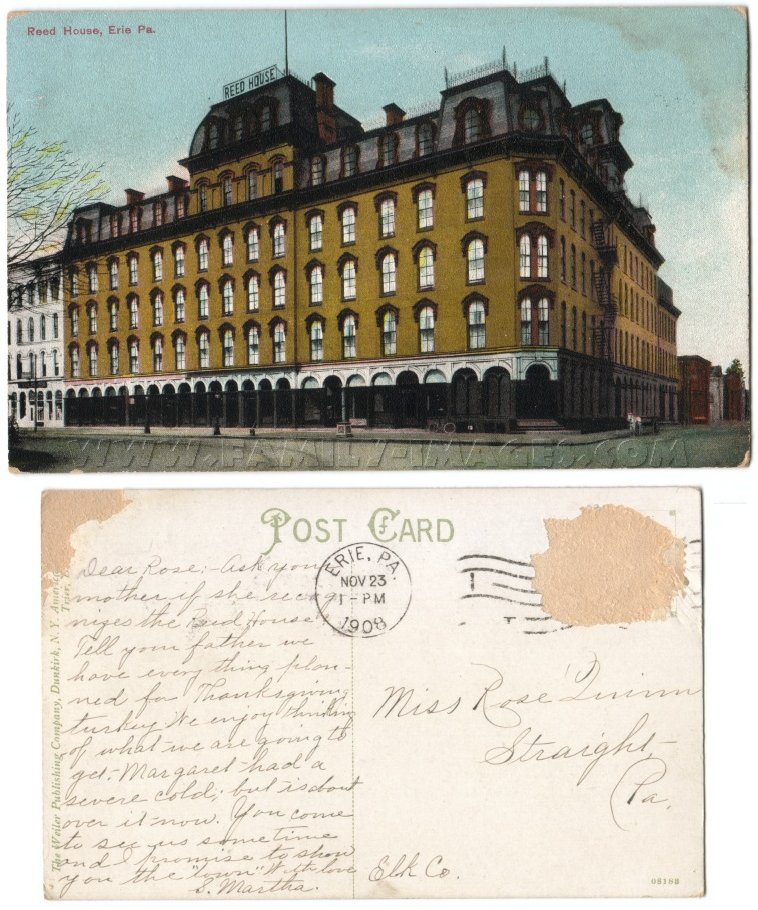 Reed House, Erie Pa.
REED HOUSE
WWW.FAMILY-IMAGES.COM
POST CARD
ERIE, PA.
NOV 23
1-PM
1908
Dear Rose;- Ask your
mother if she recog-
nizes the Reed House
Tell your father we
have every thing plan-
ned for Thanksgiving
turkey We enjoy thinking
of what we are going to
get.- Margaret had a
severe cold; but is about
over it now. You come
to see us sometime
and I promise to show
you the "town" With love
S. Martha.
Miss Rose Quinn
Straight
Pa.
Elk Co.
The Weiler Publishing Company, Dunkirk, N.Y.
08188